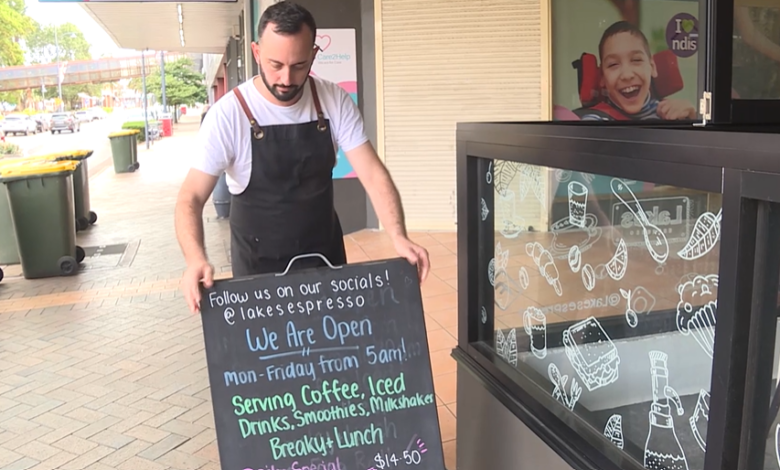 Follow us on our socials!
@lakesespresso
We Are Open
mon-Friday from 5am!
Serving Coffee, Iced
Drinks, Smoothies, Milkshakes
Breaky + Lunch
Daily Special
$14.50
I
ndis
Care2Help
Lakes
@lakesespre